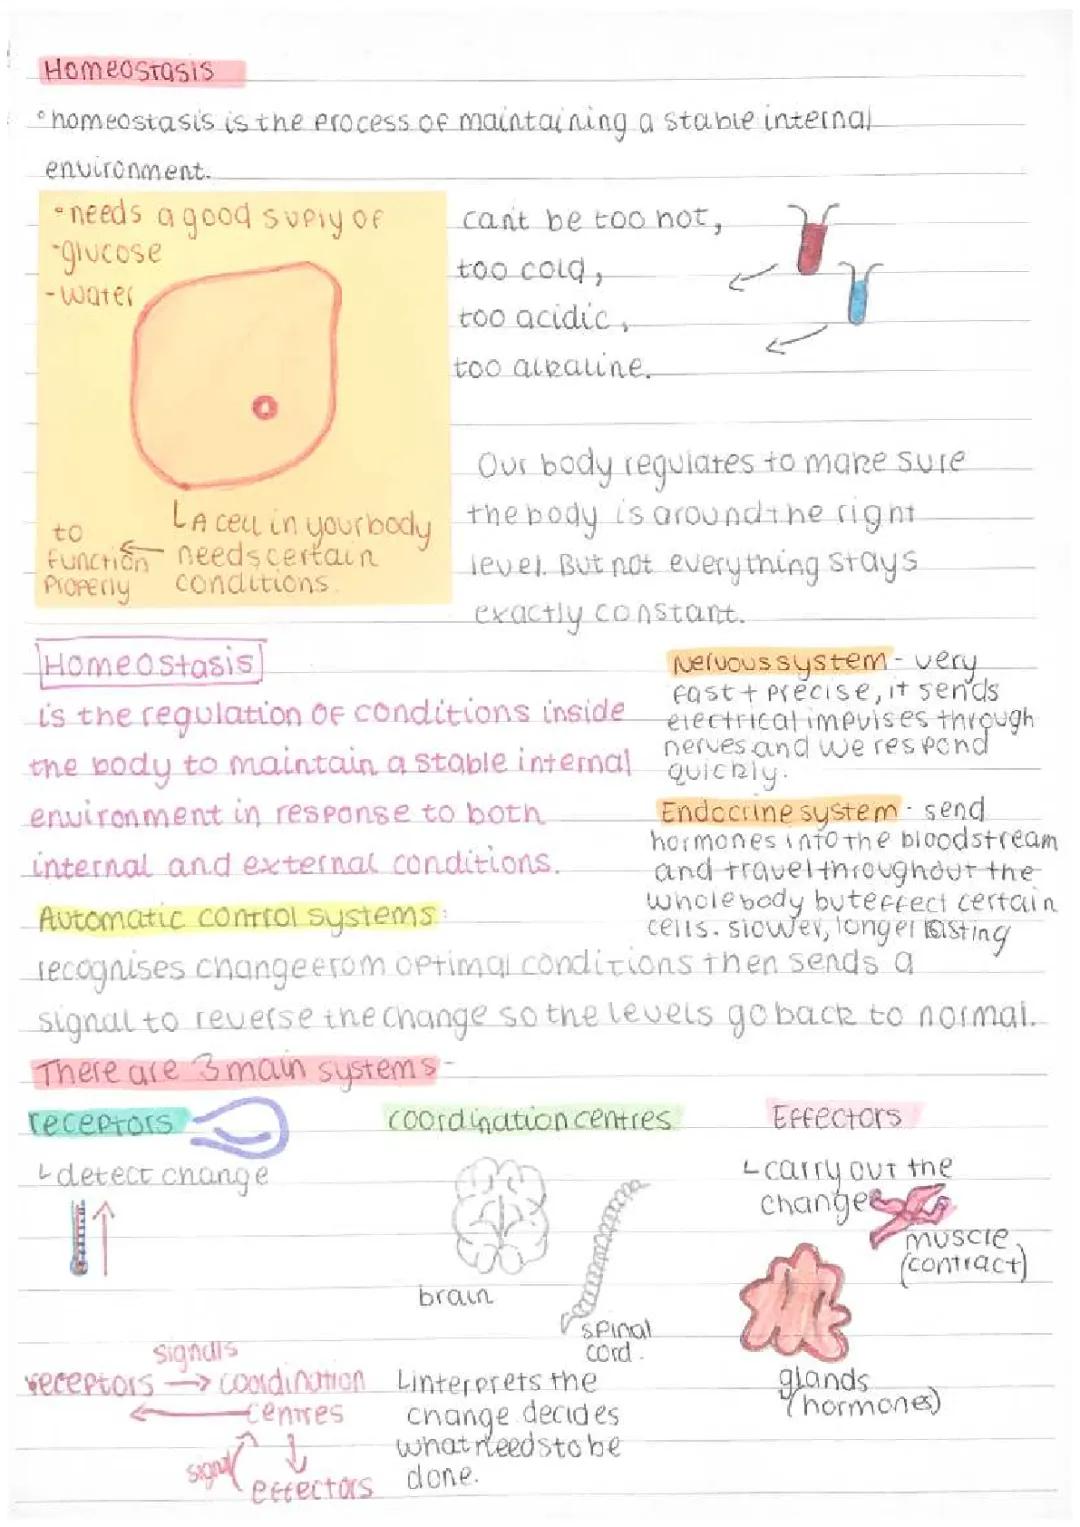 Homeostasis
°homeostasis is the process of maintaining a stable internal
environment.
°needs a good suply of
-glucose
-water
to
function
properly
A cell in your body
needs certain
conditions.
can't be too hot,
too cold,
too acidic,
too alkaline.
Our body regulates to make sure
the body is around the right
level. But not everything stays
exactly constant.
Homeostasis
is the regulation of conditions inside
the body to maintain a stable internal
environment in response to both
internal and external conditions.
Nervous system - very
fast + precise, it sends
electrical impulses through
nerves and we respond
quickly.
Endocrine system - send
hormones into the bloodstream
and travel throughout the
whole body but effect certain
cells. slower, longer lasting
Automatic control systems:
recognises change from optimal conditions then sends a
signal to reverse the change so the levels go back to normal.
There are 3 main systems-
receptors
detect change
coordination centres
brain
spinal
cord.
interprets the
change decides
what needs to be
done.
Effectors
carry out the
change
muscle
(contract)
glands
(hormones)
signals
receptors → coordination
centres
signal
effectors